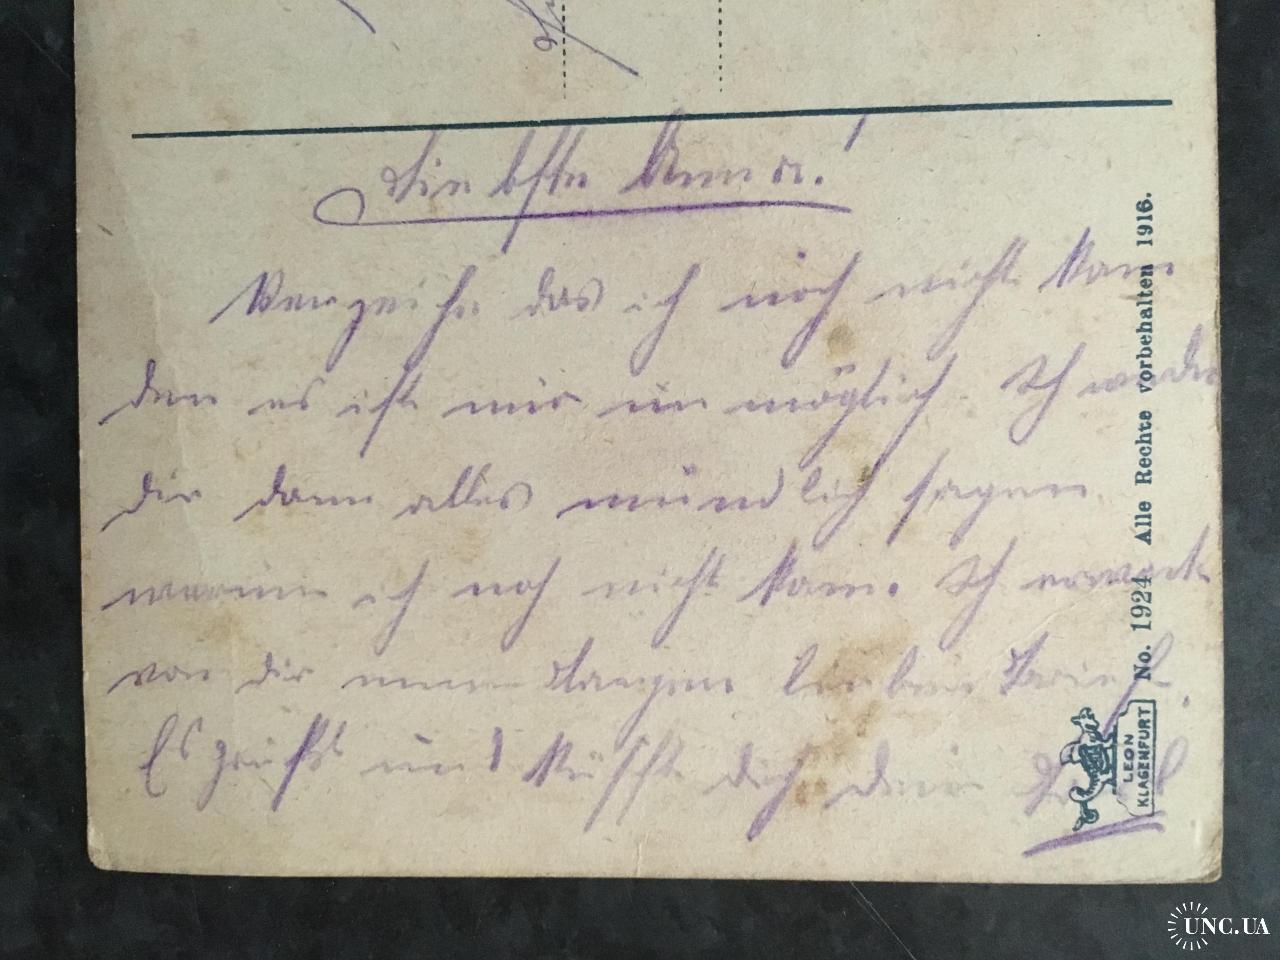 Liebste Anna!
Verzeihe das ich noch nicht kam
den es ist mir unmöglich. Ich werde
dir dann alles mündlich sagen
warum ich noch nicht kam. Ich erwarte
von dir einen langen lieben Brief.
Es grüßt und küsst dich dein
No. 1924 Alle Rechte vorbehalten 1916.
LEON
KLAGENFURT
UNC.UA